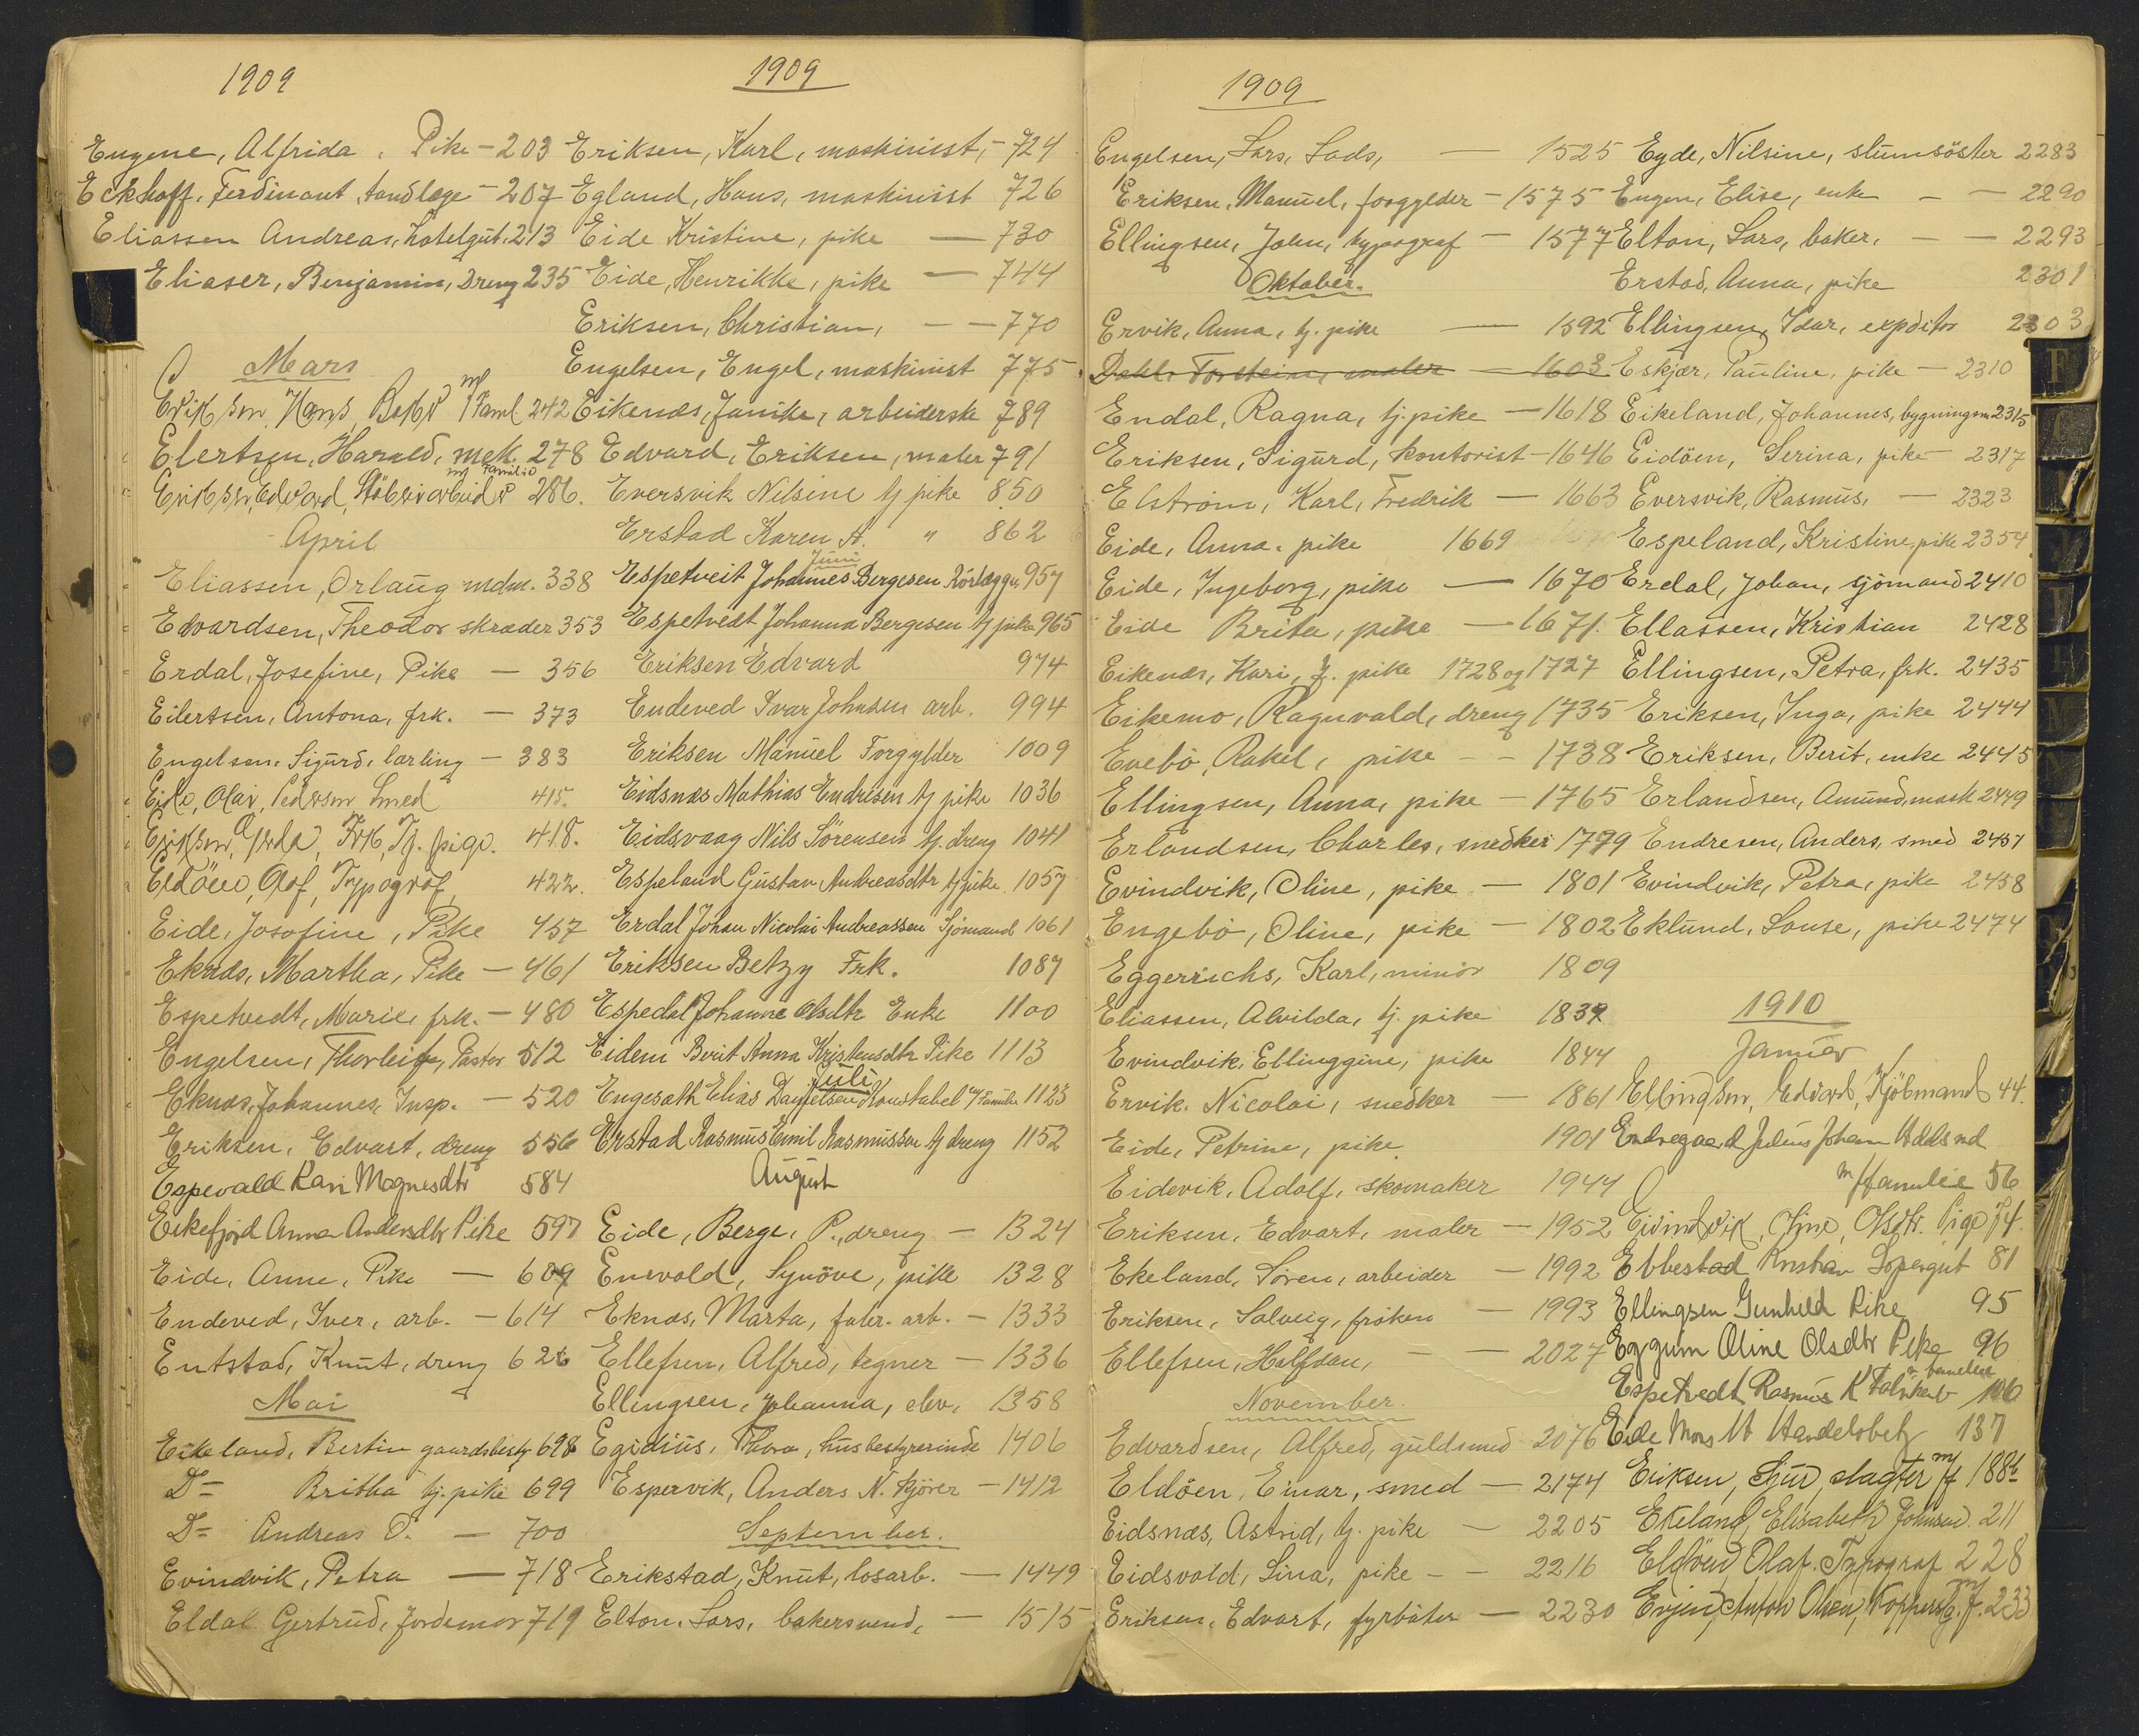 1909
Eugene, Alfrida, Pike - 203
Eckhoff, Ferdinant, tandlæge - 207
Eliassen Andreas, hotelgut. 213
Eliaser, Benjamin, Dreng 235
Mars
Eriksen, Hans, Baker m/ Faml 242
Elertsen, Harald, mek. 278
Eriksen, Edvard, Støberiarbeider m/ Familie 286.
April
Eliassen, Orlaug mdm. 338
Edvardsen, Theodor skræder 353
Erdal, Josefine, Pike - 356
Eilertsen, Antona, frk. - 373
Engelsen, Sigurd, lærling - 383
Eide, Olai, Pedersen Smed 415.
Eriksen, Gerda, Frk, Tj. pige. 418.
Eldøen, Olof, Typograf, 422.
Eide, Josofine, Pike 457
Eknæs, Martha, Pike - 461
Espetvedt, Marie, frk. - 480
Engelsen, Thorleif, Pastor 512
Eknæs, Johannes, Insp. - 520
Eriksen, Edvart, dreng 556
Espevald Kari Magnesdtr 584
Eikefjord Anna Andersdtr Pike 597
Eide, Anne, Pike - 609
Endeved, Iver, arb. - 614
Entstad, Knut, dreng 626
Mai
Eikeland, Bertin gaardsbesty 698
Do Britha tj. pike 699
Do Andreas O. - 700
Evindvik, Petra - 718
Eldal Gertrud, Jordemor 719
1909
Eriksen, Karl, maskinist, - 724
Egland, Hans, maskinist 726
Eide Kristine, pike - 730
Eide, Henrikke, pike - 744
Eriksen, Christian, - - 770
Engelsen, Engel, maskinist 775
Eikenæs, Janike, arbeiderske 789
Edvard, Eriksen, maler 791
Eversvik Nilsine tj pike 850
Erstad Karen A. " 862
Juni
Espetveit Johannes Bergesen Rörlæggr. 957
Espetvedt Johanna Bergesen tj pike 965
Eriksen Edvard 974
Endeved Ivar Johnsen arb. 994
Eriksen Manuel Forgylder 1009
Eidsnæs Mathias Endresen tj pike 1036
Eidsvaag Nils Sörensen tj. dreng 1041
Espeland Gustav Andreasdtr tj pike. 1057
Erdal Johan Nicolai Andreassen Sjömand 1061
Eriksen Betzy Frk. 1087
Espedal Johanne Olsdtr Enke 1100
Eidem Berit Anna Kristensdtr Pike 1113
Juli
Engesæth Elias Danielsen Konstabel m/ Familie 1123
Erstad Rasmus Emil Rasmussen tj dreng 1152
August
Eide, Berge, P., dreng - 1324
Ensvold, Synöve, pike 1328
Eknæs, Marta, fabr. arb. - 1333
Ellefsen, Alfred, tegner - 1336
Ellingsen, Johanna, elev, 1358
Egidius, Thora, husbestyrerinde 1406
Espervik, Anders N. kjörer - 1412
September.
Erikstad, Knut, losarb. - 1449
Elton, Lars, bakersvend, - 1515
1909
Engelsen, Lars, Lods, - 1525
Eriksen, Manuel, forgylder - 1575
Ellingsen, John, typograf - 1577
Oktober.
Ervik, Anna, tj. pike - 1592
Dahl, Torstein, maler - 1603
Endal, Ragna, tj. pike - 1618
Eriksen, Sigurd, kontorist - 1646
Elström, Karl, Fredrik - 1663
Eide, Anna, pike 1669
Eide, Ingeborg, pike - 1670
Eide Brita, pike - 1671.
Eikenæs, Kari, tj. pike 1728 og 1727
Eikemo, Ragnvald, dreng 1735
Enebö, Rakel, pike - - 1738
Ellingsen, Anna, pike - 1765
Erlandsen, Charles, snedker 1779
Evindvik, Oline, pike - 1801
Engebö, Oline, pike - 1802
Eggerrichs, Karl, minör 1809
Eliassen, Alvilda, tj. pike 1839
Evindvik, Ellinggine, pike 1844
Ervik, Nicolai, snedker - 1861
Eide, Petrine, pike. 1901
Eidevik, Adolf, skomaker 1944
Eriksen, Edvart, maler - 1952
Ekeland, Sören, arbeider - 1992
Eriksen, Solveig, fröken - 1993
Ellefsen, Halfdan, - - 2027
November.
Edvardsen, Alfred, guldsmed 2076
Eldöen, Einar, smed - 2174
Eidsnæs, Astrid, tj. pike - 2205
Eidsvold, Lina, pike - - 2216
Eriksen, Edvart, fyrböter - 2230
Eyde, Nilsine, slumsöster 2283
Eugen, Elise, enke - - 2290
Elton, Lars, baker, - - 2293
Erstad, Anna, pike 2301
Ellingsen, Idar, expditör 2303
Eskjær, Pauline, pike - 2310
Eikeland, Johannes, bygningsm 2315
Eidöen, Serina, pike - 2317
Eversvik, Rasmus, - 2323
Espeland, Kristine, pike 2354
Erdal, Johan, sjömand 2410
Ellassen, Kristian 2428
Ellingsen, Petra, frk. 2435
Eriksen, Inga, pike 2444
Eriksen, Berit, enke 2445
Erlandsen, Amund, mask 2449
Endresen, Anders, smed 2457
Evindvik, Petra, pike 2458
Eklund, Louse, pike 2474
1910
Januar
Ellingsen, Edvard, Kjøbmand 44.
Endregaard Julius Johan
m/familie 56
Eivindvik, Oline, Olsdtr. Pige 74.
Ebbestad Kristian Lopergut 81
Ellingsen Gunhild Pike 95
Eggum Oline Olsdtr Pike 96
Espetvedt Rasmus K m familie 106
Eide Mons M Handelsbetj 137
Eriksen, Sjur, slagter m/f 188b
Ekeland, Elisabeth Johnsen. 211
Eldöen Olaf. Typograf 228
Evjen, Anton Olsen, m/f. 233